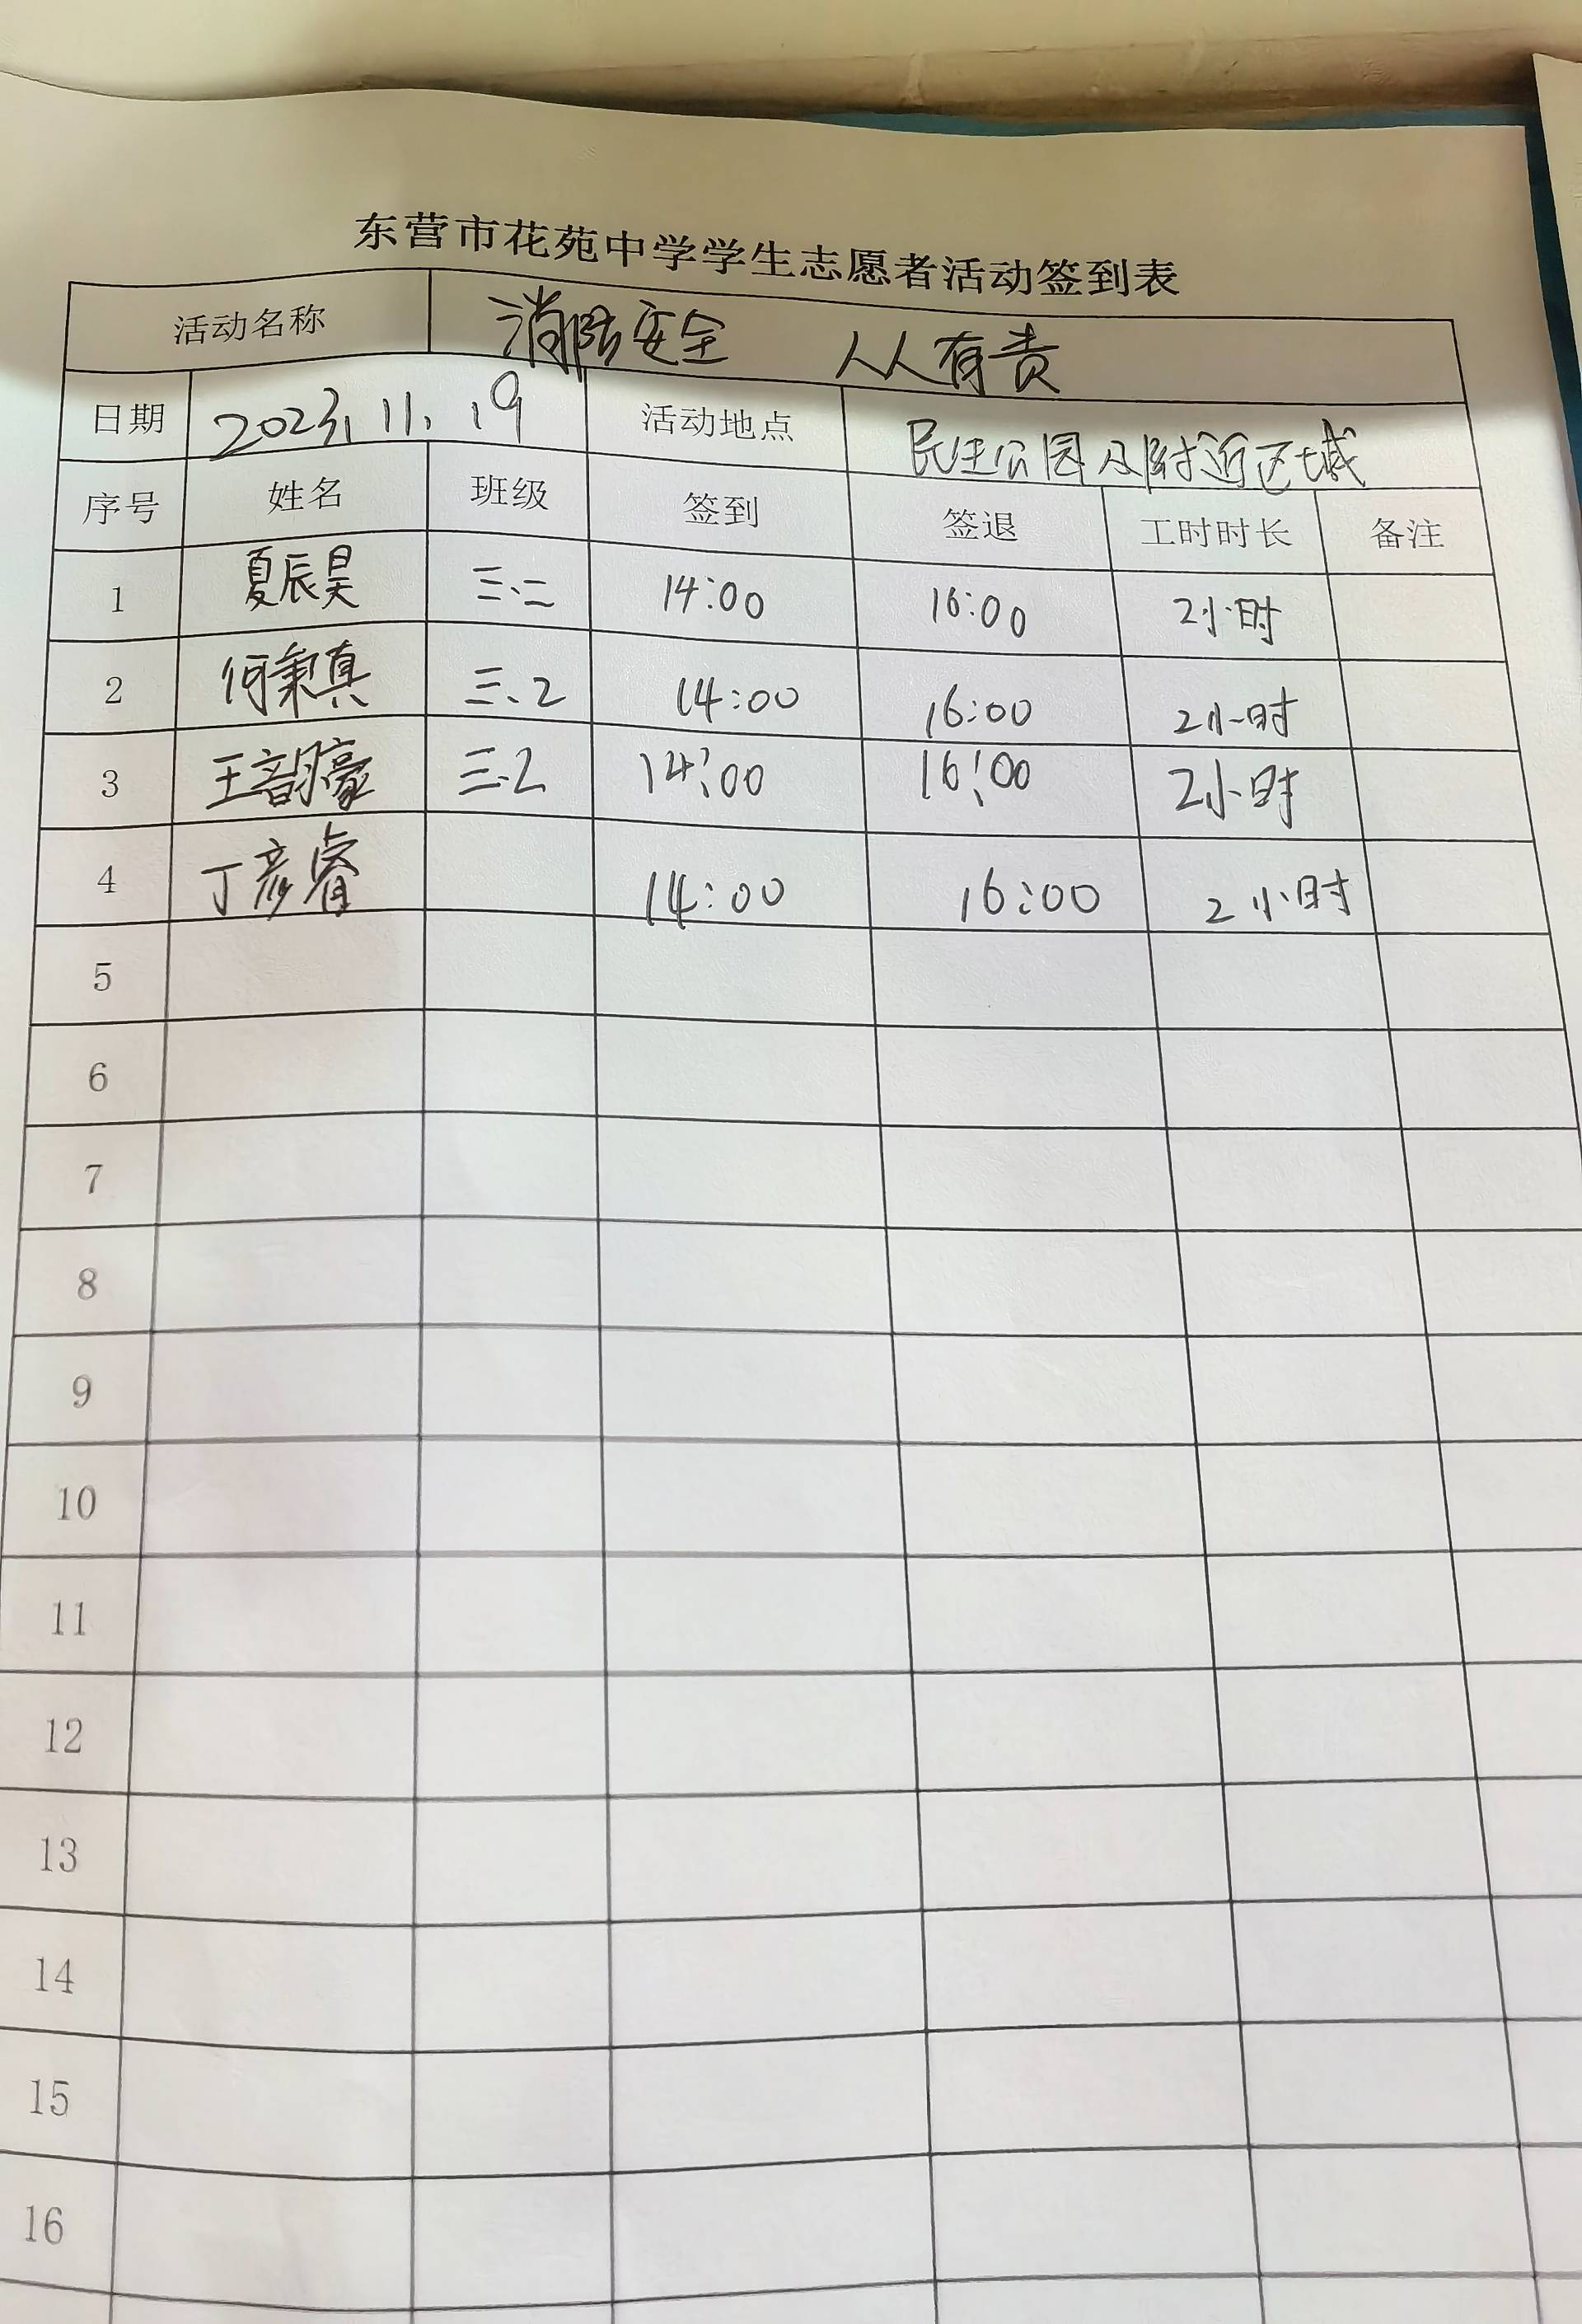 东营市花苑中学学生志愿者活动签到表
活动名称 消防安全 人人有责
日期 2023.11.19 活动地点 民生公园及附近区域
序号 姓名 班级 签到 签退 工时时长 备注
1 夏辰昊 三.二 14:00 16:00 2小时
2 何秉真 三.2 14:00 16:00 2小时
3 王韵豪 三.2 14:00 16:00 2小时
4 丁彦睿 14:00 16:00 2小时
5
6
7
8
9
10
11
12
13
14
15
16